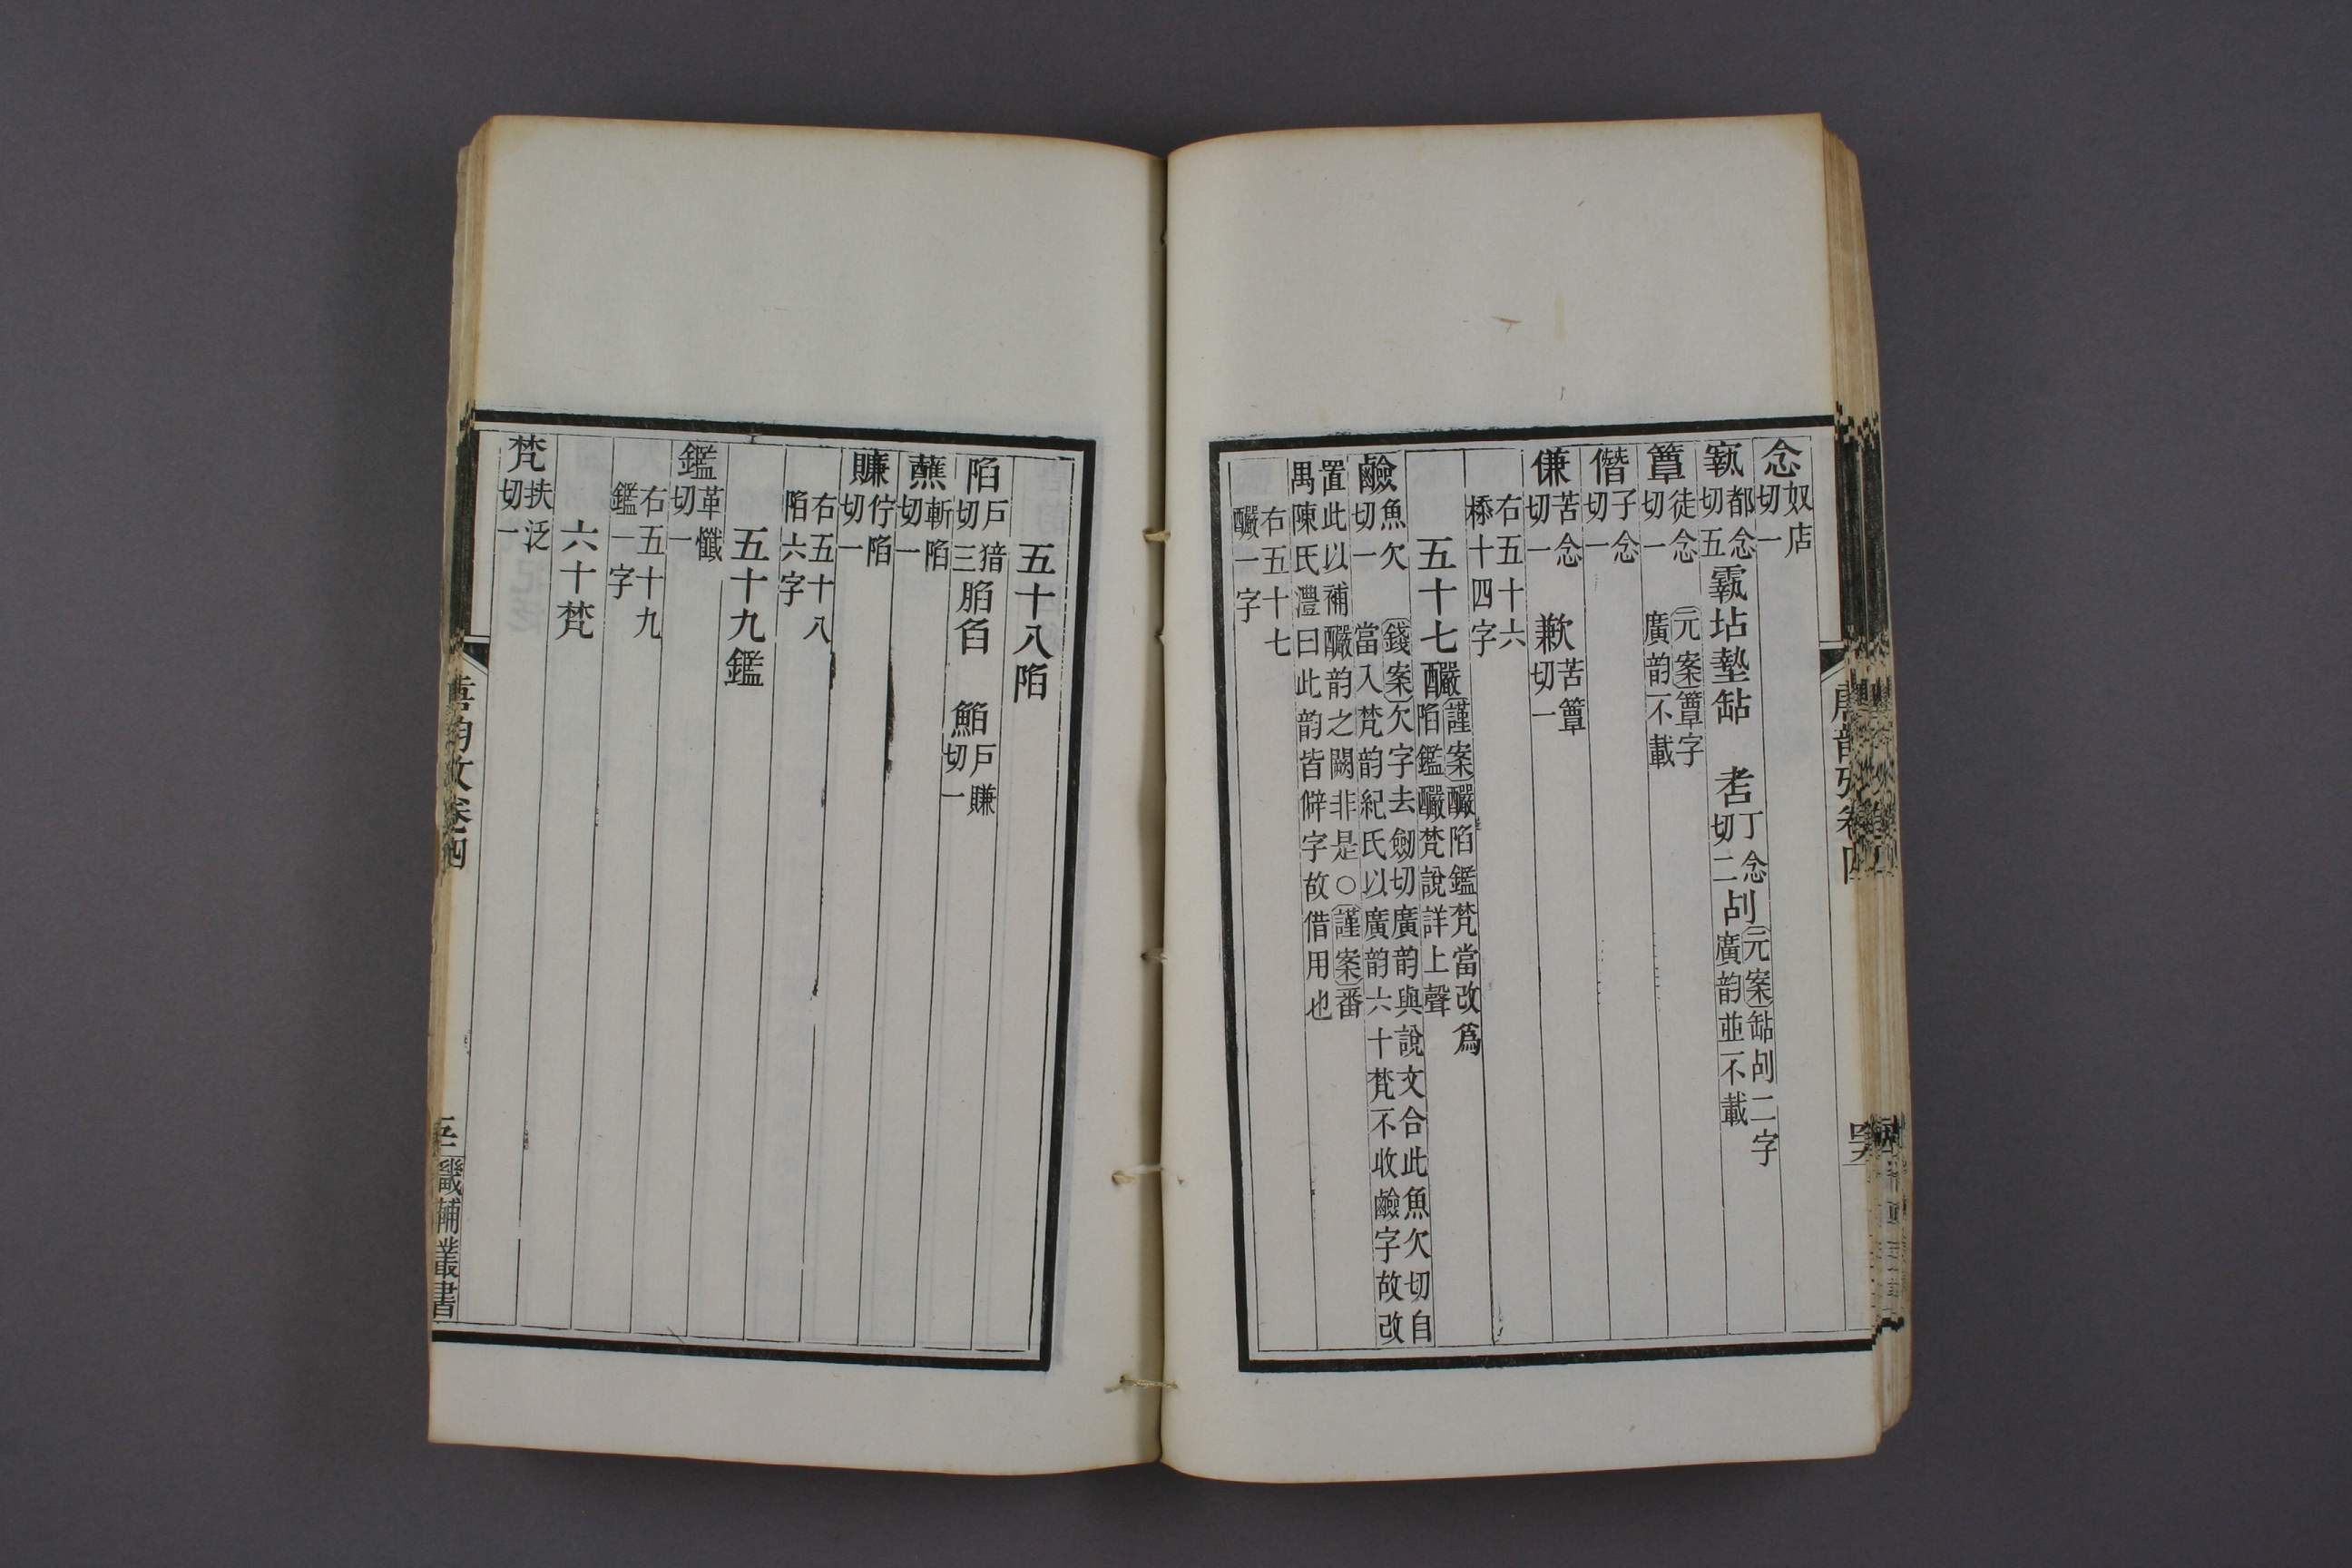 念奴店切一
𡫏都念切五霸坫墊㸃 㓠丁念切二刮元案㸃刮二字廣韵並不載
簟徒念切一 元案簟字廣韵不載
僭子念切一
傔苦念切一 歉苦簟切一
右五十六㮇十四字
五十七釅謹案釅陷鑑梵當改爲陷鑑釅梵說詳上聲
鹼魚欠切一 錢案欠字去劒切廣韵與說文合此魚欠切自當入梵韵紀氏以廣韵六十梵不收鹼字故改
置此以補釅韵之闕非是○謹案番禺陳氏澧曰此韵皆僻字故借用也
右五十七釅一字
唐韵攷卷四
五十八陷
陷戶㺂切三䐄臽 䱤戶賺切一
蘸斬陷切一
賺佇陷切一
右五十八陷六字
五十九鑑
鑑革懺切一
右五十九鑑一字
六十梵
梵扶泛切一
唐韵攷卷四
畿輔叢書